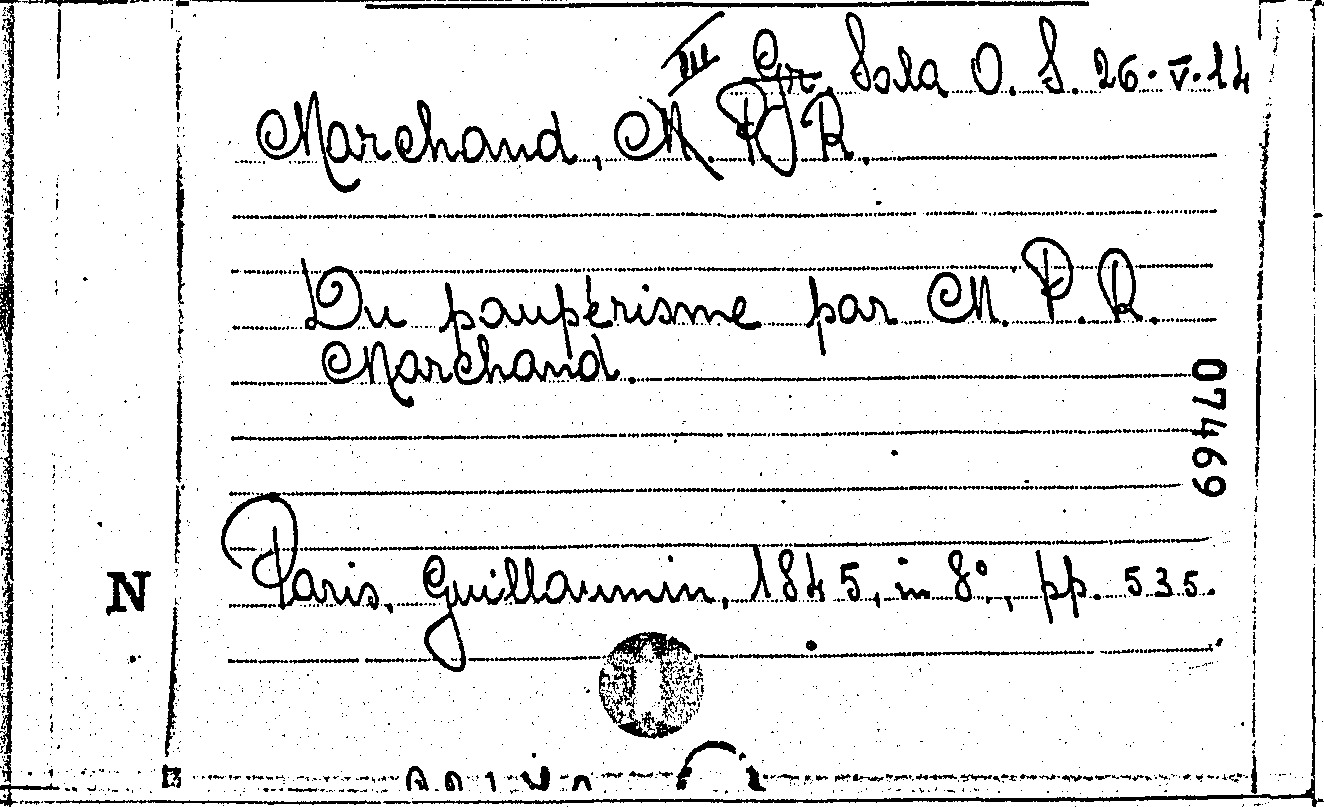 III Gr. Sala O. S. 26.V.14
Marchand, M. P. R.
Du paupérisme par M. P. R.
Marchand.
07469
Paris, Guillaumin, 1845, in 8°, pp. 535.
N